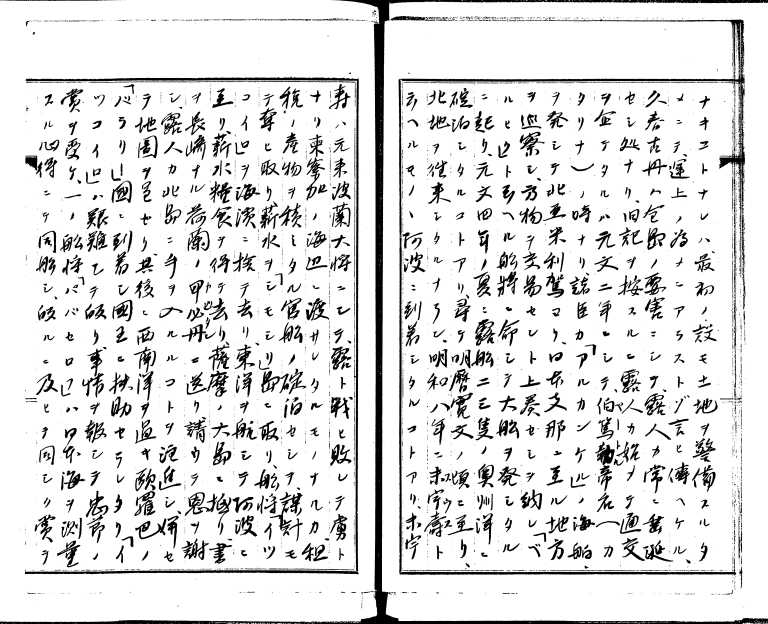 ナキコトナレハ最初ノ説モ土地ヲ警備スルタ
メニテ運上ノ為メニアラストゾ言ヒ傳ヘケル、
久春古丹ハ仝島ノ要害ニシテ、露人カ常ニ垂涎
セシ処ナリ、旧記ヲ按スルニ露人カ始メテ通交
ヲ企テタルハ元文二年ニシテ伯篤
タリナ)ノ時ナリ、「アルカンケ」ノ海舶
ヲ発シテ北亜米利駕ヨリ日本支那ニ至ル地方
ヲ巡察シ、方物ヲ交易セント上奏セシヲ納レ「ベ
ルヒ」ト云ヘル舩将ニ命シテ大舩ヲ発シタル
ニ起リ元文四年ノ夏ニ露舩二三隻ノ奥州洋ニ
碇泊シタルコトアリ、尋テ明暦寛文ノ頃ニ至リ、
北地ヲ往来シタルナラン、明和八年ニホ宇壽ト
云ヘルモノヽ阿波ニ到着シタルコトアリ、ホ宇
壽ハ元来波蘭大将ニシテ、露ト戦ヒ敗レテ虜ト
ナリ東察加ノ海辺ニ渡サレタルモノナルカ、租
税ノ産物ヲ積ミタル官舩ノ碇泊セシヲ謀計モ
テ奪ヒ取リ薪水ヲ「シモシリ」島ニ取リ、舩将「イツ
コイ」ヲ海濱ニ捨テ去リ、東洋ヲ航シテ阿波ニ
至リ薪水糧食ヲ得テ去リ薩摩ノ大島ニ抵リ書
ヲ長崎ナル荷蘭ノ甲必丹ニ送リ請ウテ恩ヲ謝
シ、露人カ北島ニ手ヲ入ルルコトヲ注進シ、併セ
テ地圖ヲ呈セリ其後ニ西南洋ヲ過キ歐羅巴ノ
「バラリ」國ニ到着シ國王ニ扶助セラレタリ「イ
ツコイ」ハ艱難シテ皈リ事情ヲ報シテ忠節ノ
賞ヲ受ケ、一ノ舩将「バベセロ」ハ日本海ヲ測量
スル心得ニテ同舩シ、皈ルニ及ヒテ同シク賞ヲ